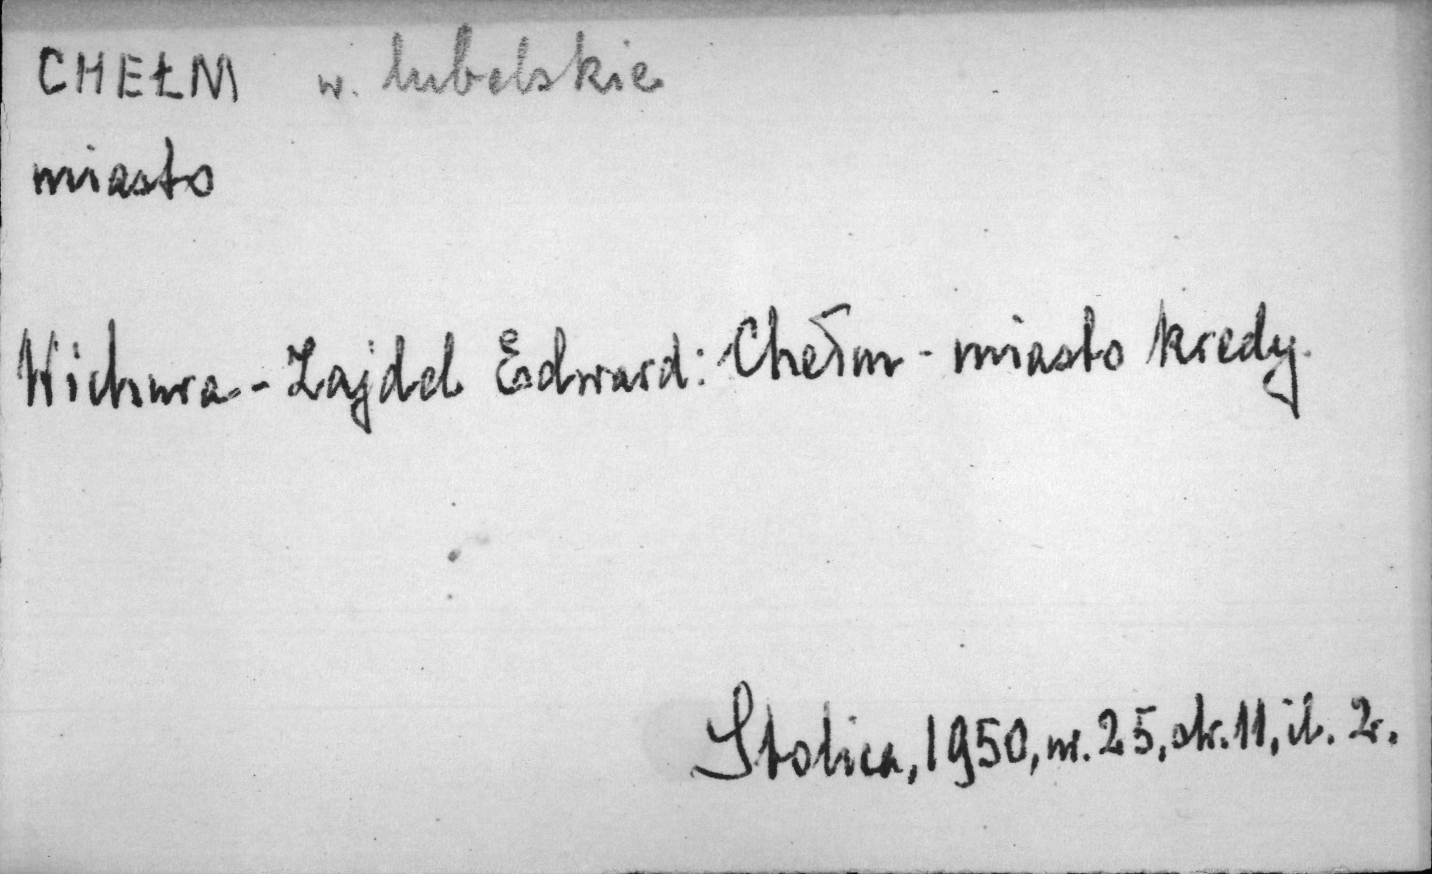 CHEŁM w. lubelskie
miasto
Wichura-Zajdel Edward: Chełm - miasto kredy.
Stolica, 1950, nr. 25, str. 11, il. 2.